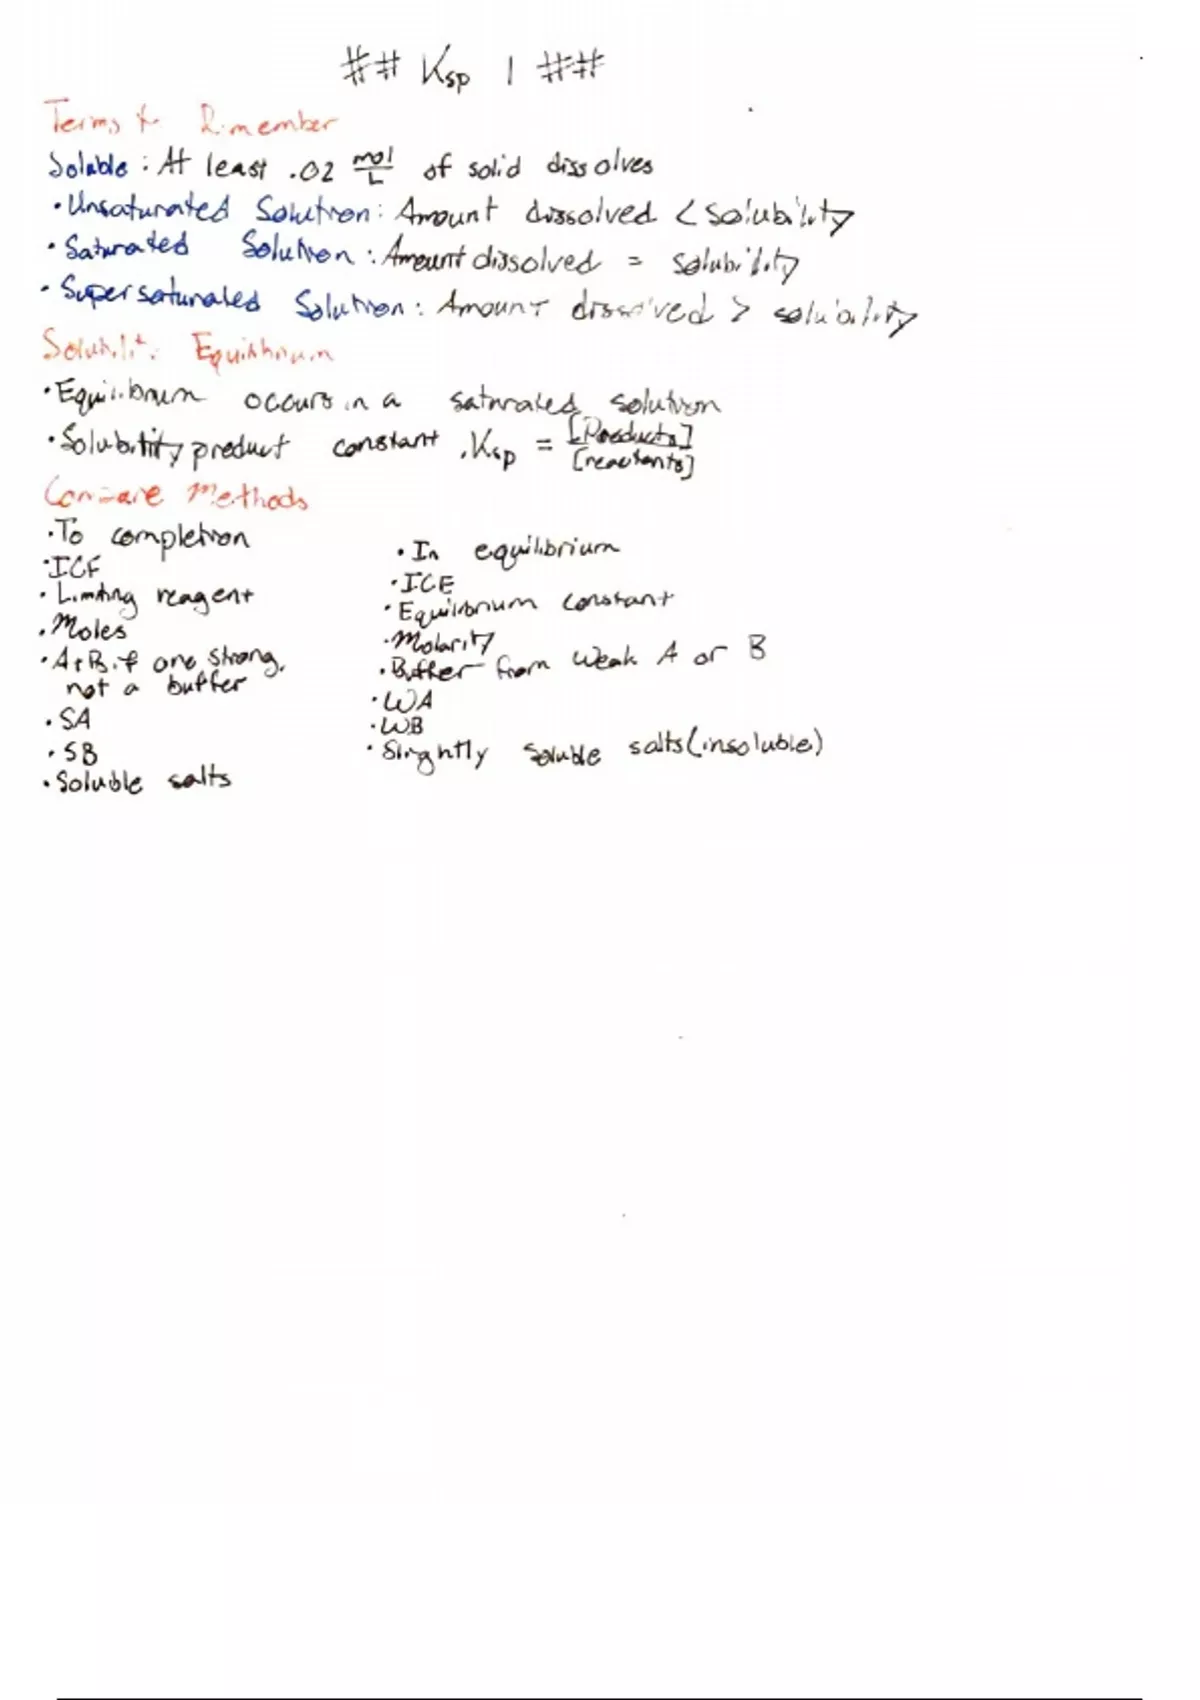 ## Ksp 1 ##
Terms to Remember
Soluble: At least .02 mol/L of solid dissolves
• Unsaturated Solution: Amount dissolved < solubility
• Saturated Solution: Amount dissolved = solubility
• Supersaturated Solution: Amount dissolved > solubility
Solubility Equilibrium
• Equilibrium occurs in a saturated solution
• Solubility product constant, Ksp = [Products]/[reactants]
Compare Methods
• To completion
• ICF
• Limiting reagent
• Moles
• A+B if one strong,
not a buffer
• SA
• SB
• Soluble salts
• In equilibrium
• ICE
• Equilibrium constant
• Molarity
• Buffer from weak A or B
• WA
• WB
• Slightly soluble salts (insoluble)